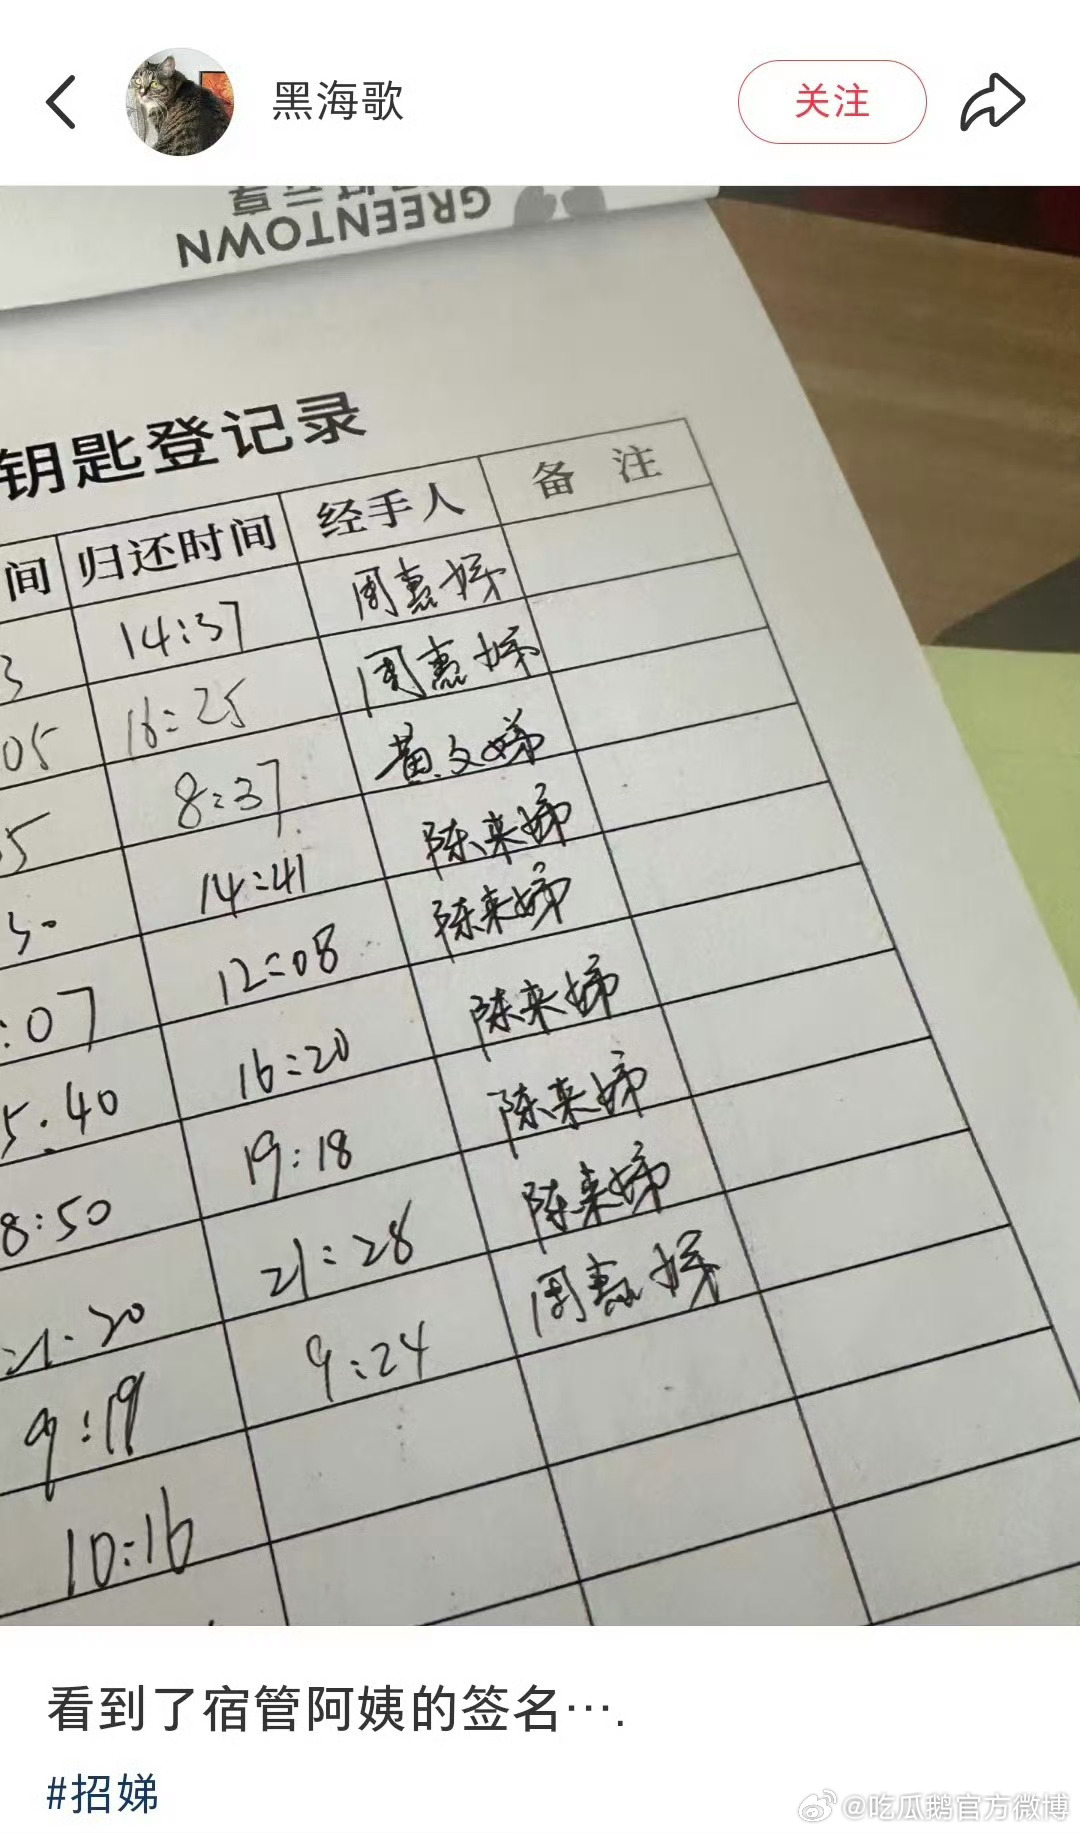 黑海歌
关注
GREENTOWN
钥匙登记录
间 归还时间 经手人 备 注
3 14:37 周惠娣
05 16:25 周惠娣
5 8:37 黄文娣
30 14:41 陈来娣
:07 12:08 陈来娣
5:40 16:20 陈来娣
8:50 19:18 陈来娣
21:20 21:28 陈来娣
9:19 9:24 周惠娣
10:16
看到了宿管阿姨的签名….
#招娣
@吃瓜鹅官方微博